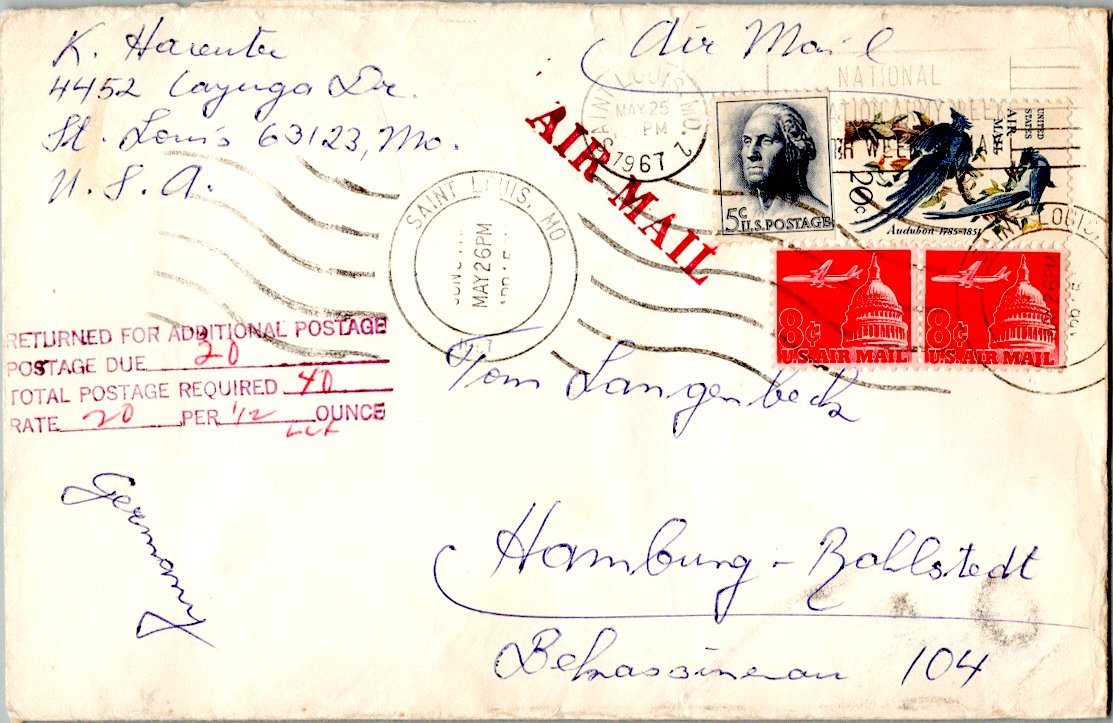 K. Harenter
4452 Cayuga Dr.
St. Louis 63123, Mo.
U. S. A.
Air Mail
SAINT LOUIS, MO. 2
MAY 25
PM
1967
NATIONAL
WEEK
AIR MAIL
5¢
U.S. POSTAGE
UNITED STATES
AIR MAIL
20¢
Audubon 1785-1851
SAINT LOUIS, MO
MAY 26 PM
8¢
U.S. AIR MAIL
8¢
U.S. AIR MAIL
SAINT LOUIS,
RETURNED FOR ADDITIONAL POSTAGE
POSTAGE DUE 20
TOTAL POSTAGE REQUIRED 40
RATE 20 PER 1/2 OUNCE
Tom Langenbeck
Germany
Hamburg - Rahlstedt
Bekassinenau 104